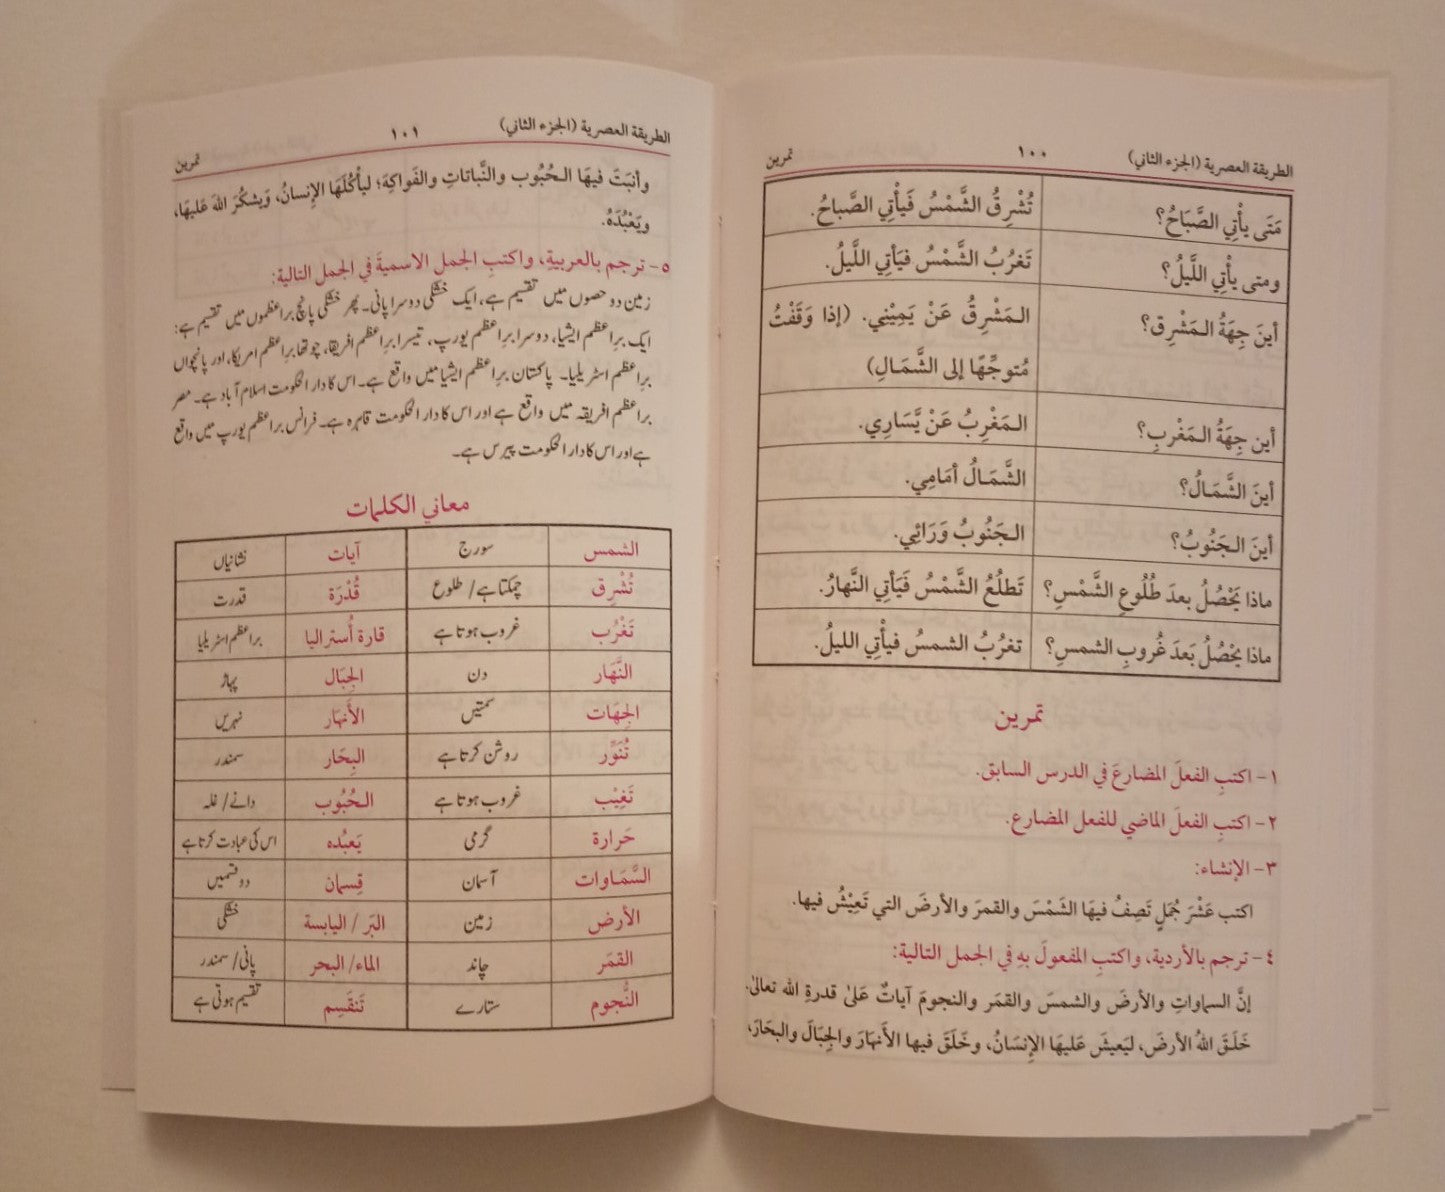 الطريقة العصرية (الجزء الثاني) ١٠٠ تمرين
مَتَى يأْتِي الصَّبَاحُ؟ تُشْرِقُ الشَّمْسُ فَيأْتِي الصَّباحُ.
ومتى يأْتِي اللَّيلُ؟ تَغرُبُ الشَّمْسُ فيَأتِي اللَّيلُ.
أينَ جِهَةُ المَشْرِق؟ المَشْرِقُ عَنْ يَمِيْنِي. (إذا وَقَفْتُ
مُتوجِّهًا إلى الشَّمَالِ)
أين جِهَةُ المَغْربِ؟ المَغْرِبُ عَنْ يَّسَارِي.
أينَ الشَّمَالُ؟ الشَّمَالُ أمَامِي.
أينَ الجَنُوبُ؟ الجَنُوبُ وَرَائِي.
ماذا يَحْصُلُ بعدَ طُلُوعِ الشَّمْسِ؟ تَطلُعُ الشَّمْسُ فَيَأتِي النَّهارُ.
ماذا يحْصُلُ بَعدَ غُروبِ الشمسِ؟ تغرُبُ الشمسُ فيأْتِي الليلُ.
تمرين
١- اكتبِ الفعلَ المضارعَ في الدرس السابق.
٢- اكتبِ الفعلَ الماضي للفعل المضارع.
٣- الإنشاء:
اكتب عَشْرَ جُمَلٍ تَصِفُ فيهَا الشَمْسَ والقمرَ والأرضَ التي تَعِيْشُ فيها.
٤- ترجم بالأردية، واكتبِ المفعولَ بهِ في الجمل التالية:
إنَّ السماواتِ والأرضَ والشمسَ والقمَر والنجومَ آياتٌ عَلىٰ قدرةِ الله تعالىٰ.
خَلَقَ اللهُ الأرضَ، ليَعيشَ عَليهَا الإِنسَانُ، وخَلَقَ فيها الأَنهَارَ والجِبَالَ والبحَارَ،
الطريقة العصرية (الجزء الثاني) ١٠١ تمرين
وأنبَتَ فيهَا الحُبُوب والنَّباتاتِ والفَواكِهَ؛ ليأكُلَهَا الإنسانُ، وَيشكُرَ اللهَ عَليهَا،
ويَعْبُدَهُ.
٥- ترجم بالعربيةِ، واكتبِ الجمل الاسميةَ في الجمل التالية:
زمین دو حصوں میں تقسیم ہے، ایک خشکی دوسرا پانی۔ پھر خشکی پانچ براعظموں میں تقسیم ہے:
ایک براعظم ایشیا، دوسرا براعظم یورپ، تیسرا براعظم افریقا، چوتھا براعظم امریکا، اور پانچواں
براعظم اسٹریلیا۔ پاکستان براعظم ایشیا میں واقع ہے۔ اس کا دار الحکومت اسلام آباد ہے۔ مصر
براعظم افریقہ میں واقع ہے اور اس کا دار الحکومت قاہرہ ہے۔ فرانس براعظم یورپ میں واقع
ہے اور اس کا دار الحکومت پیرس ہے۔
معاني الكلمات
الشمس سورج آيات نشانیاں
تُشْرِق چمکتا ہے/ طلوع قُدْرَة قدرت
تَغْرُب غروب ہوتا ہے قارة أُستراليا براعظم اسٹریلیا
النَّهَار دن الجِبَال پہاڑ
الجِهَات سمتیں الأَنهَار نہریں
تُنَوِّر روشن کرتا ہے البِحَار سمندر
تَغِيْب غروب ہوتا ہے الحُبُوب دانے/ غلہ
حَرارة گرمی يَعبُده اس کی عبادت کرتا ہے
السَّمَاوات آسمان قِسمان دو قسمیں
الأرض زمین البَر / اليابسة خشکی
القمَر چاند الماء/ البحر پانی/ سمندر
النُّجوم ستارے تَنقَسِم تقسیم ہوتی ہے